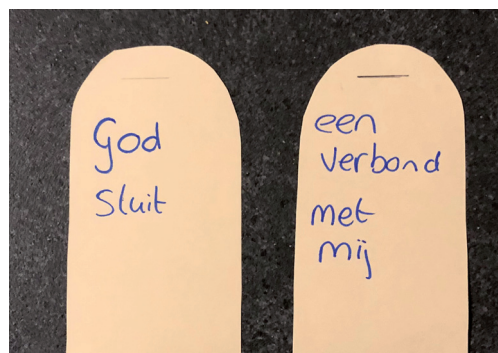 God
sluit
een
verbond
met
mij